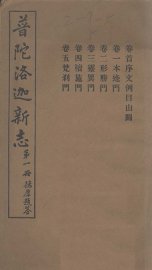 卷首序文例目山圖
卷一本迹門
卷二形勝門
卷三靈異門
卷四檀施門
卷五梵刹門
普陀洛迦新志
第一冊